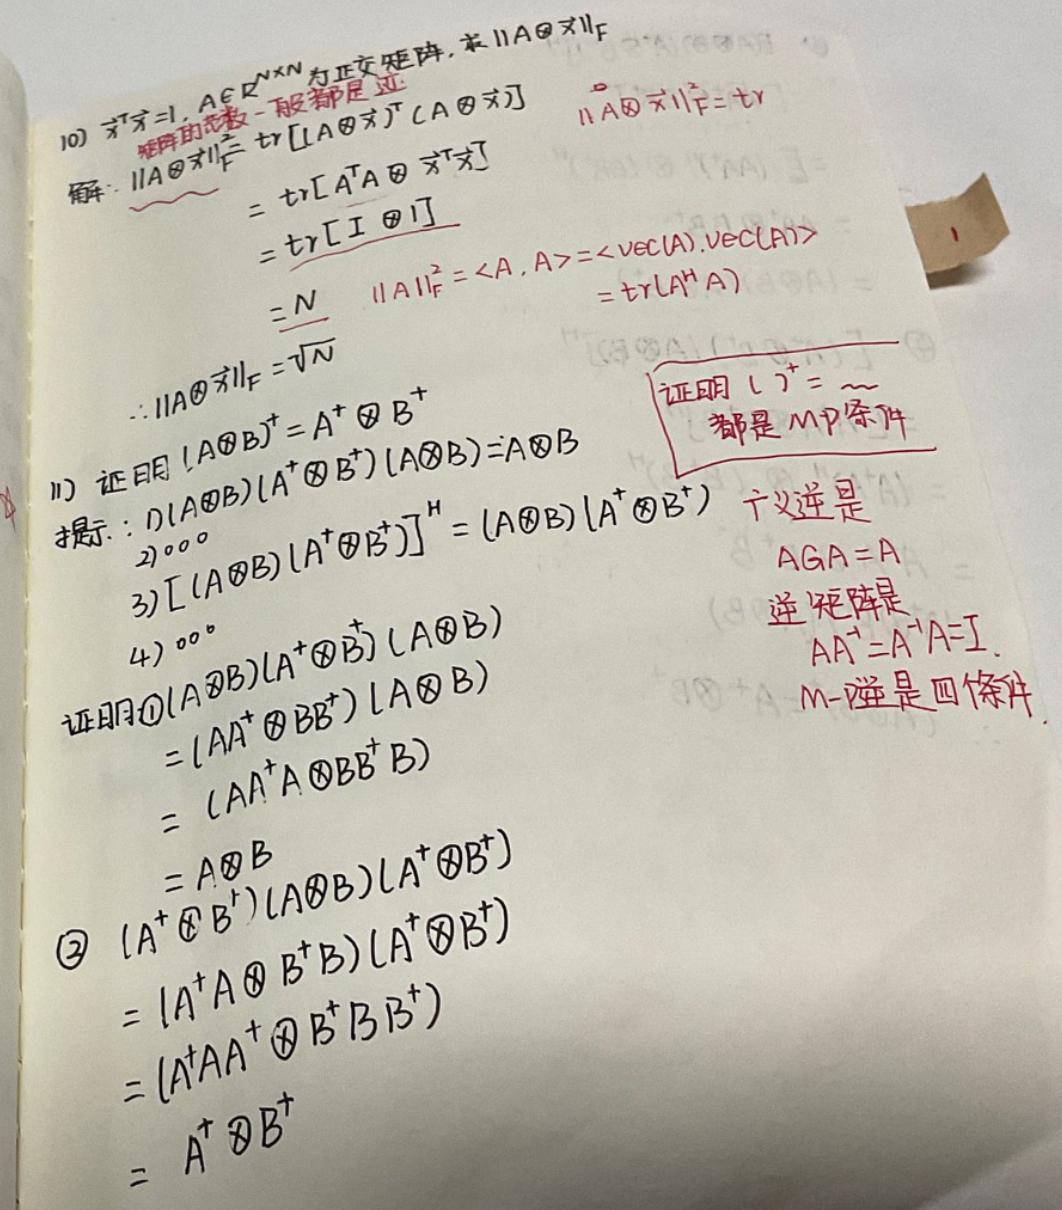 10) x⃗ᵀx⃗=1, A∈R^{N×N} 为正交矩阵, 求 ||A⊗x⃗||_F
矩阵的范数一般都是迹
解: ||A⊗x⃗||²_F = tr[(A⊗x⃗)ᵀ(A⊗x⃗)]
||A⊗x⃗||²_F = tr
= tr[AᵀA⊗x⃗ᵀx⃗]
= tr[I⊗1]
= N
||A||²_F = <A, A> = <vec(A), vec(A)>
= tr(A^H A)
∴ ||A⊗x⃗||_F = √N
11) 证明 (A⊗B)⁺ = A⁺⊗B⁺
证明 ( )⁺ = ~
都是 MP条件
提示: 1) (A⊗B)(A⁺⊗B⁺)(A⊗B) = A⊗B
2) 。。。
3) [(A⊗B)(A⁺⊗B⁺)]^H = (A⊗B)(A⁺⊗B⁺)
4) 。。。
广义逆是
AGA = A
逆矩阵是
AA⁻¹ = A⁻¹A = I.
M-P逆是四條件.
证明① (A⊗B)(A⁺⊗B⁺)(A⊗B)
= (AA⁺⊗BB⁺)(A⊗B)
= (AA⁺A⊗BB⁺B)
= A⊗B
② (A⁺⊗B⁺)(A⊗B)(A⁺⊗B⁺)
= (A⁺A⊗B⁺B)(A⁺⊗B⁺)
= (A⁺AA⁺⊗B⁺BB⁺)
= A⁺⊗B⁺